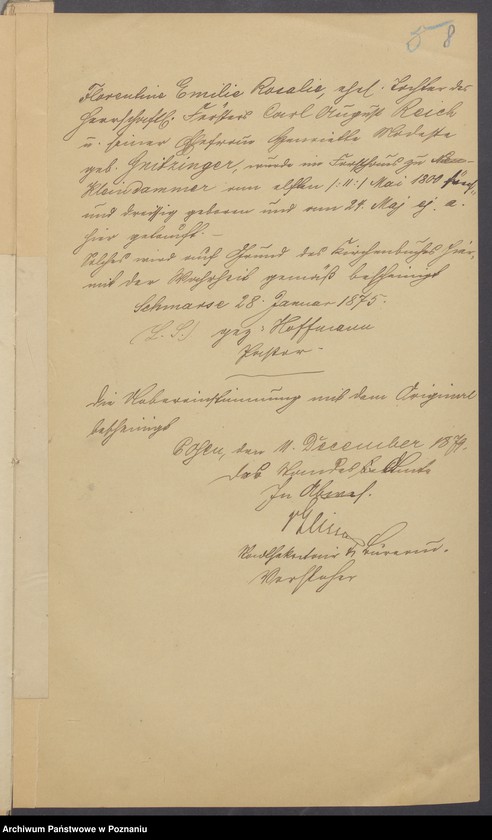 8
Florentine Emilie Rosalie, ehel. Tochter des
herrschaftl. Försters Carl August Reich
u. seiner Ehefrau Henriette Modeste
geb. Gritzinger, wurde im Forsthaus zu
Kleindammer am elften /:11:/ Mai 1800 fünf
und dreißig geboren und am 24. Maj ej. a.
hier getauft. –
Solches wird auf Grund des Kirchenbuches hier
mit der Wahrheit gemäß bescheinigt
Schmarse 28. Januar 1875.
(L. S.) gez. Hoffmann
Pastor –
Die Uebereinstimmung mit dem Original
bescheinigt
Posen, den 11. December 1879.
Das Standes Amt
In
Stadtsekretair &
Vorsteher
Archiwum Państwowe w Poznaniu